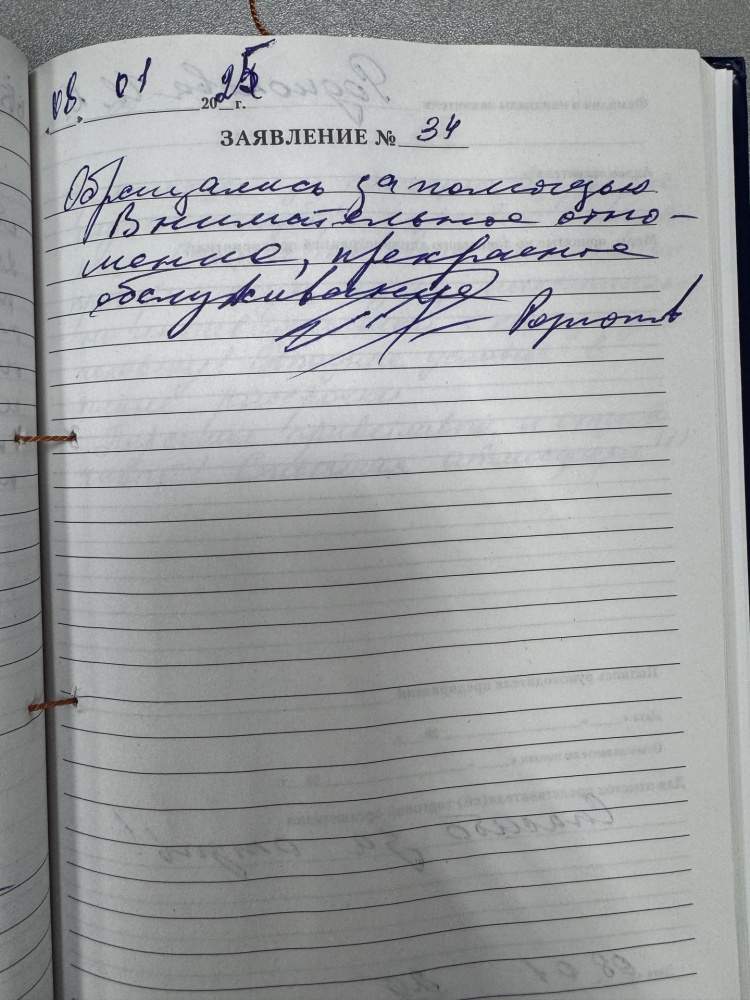 08. 01 2025 г.
ЗАЯВЛЕНИЕ № 34
Обращались за помощью
Внимательное отно-
шение, прекрасное
обслуживание